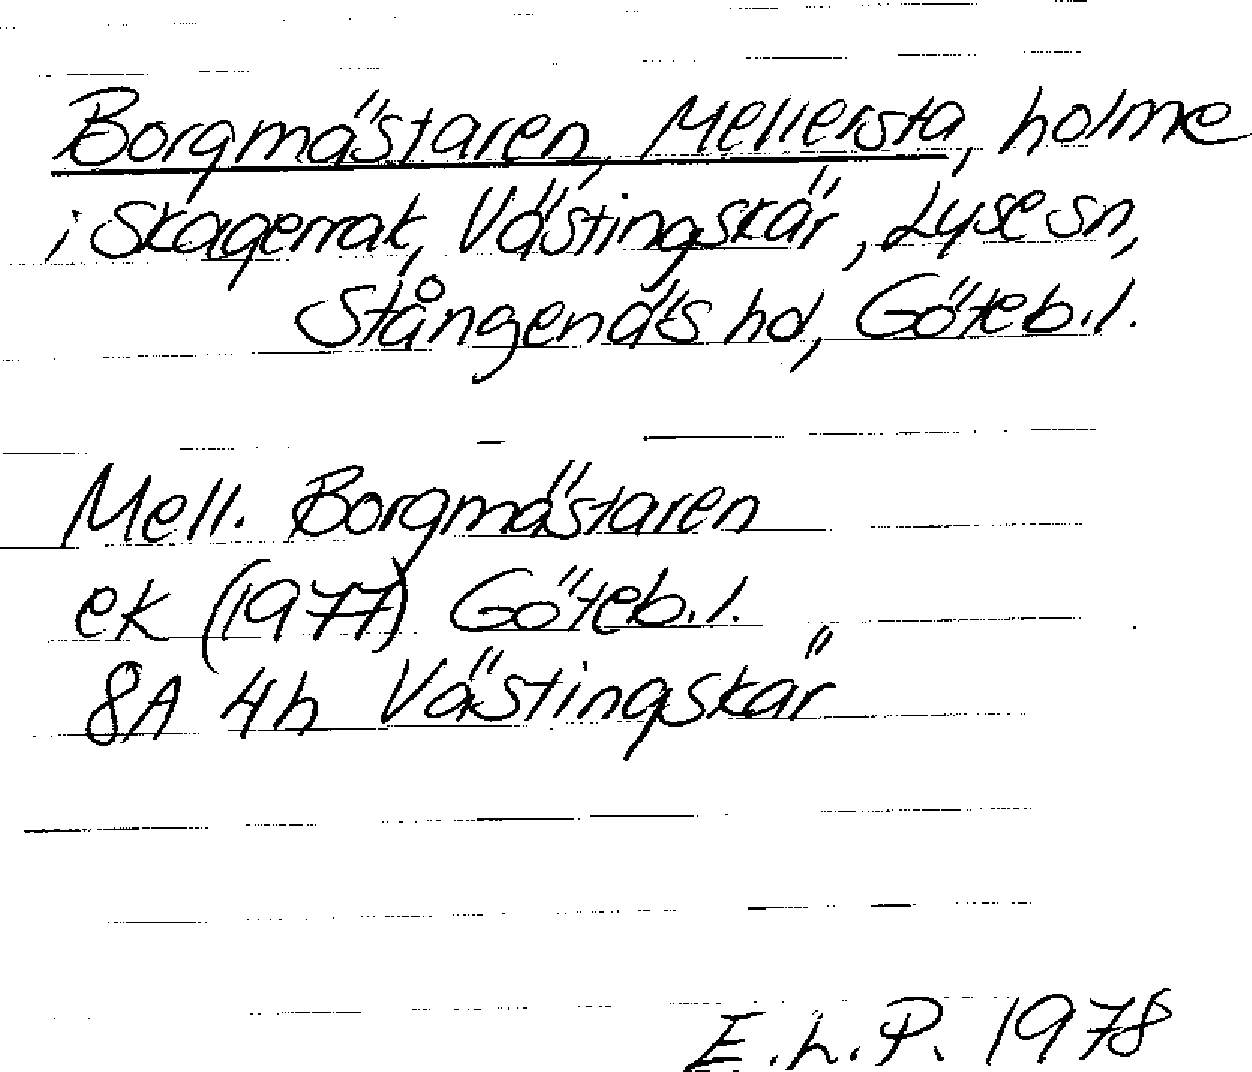 Borgmästaren, Mellersta, holme
i Skagerrak, Västingskär, Lyse sn,
Stångenäs hd, Göteb.l.
Mell. Borgmästaren
ek (1977) Göteb.l.
8A 4h Västingskär
E.L.P. 1978